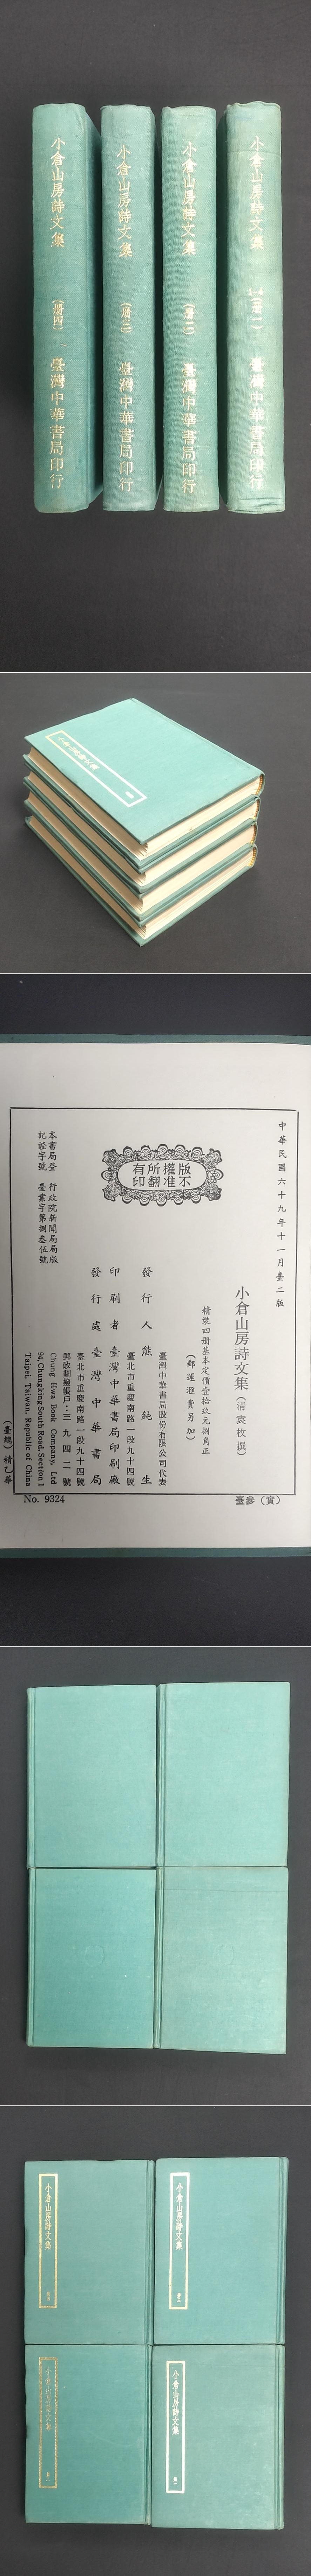 小倉山房詩文集 (冊四) 臺灣中華書局印行
小倉山房詩文集 (冊三) 臺灣中華書局印行
小倉山房詩文集 (冊二) 臺灣中華書局印行
小倉山房詩文集 1-4 (冊一) 臺灣中華書局印行
中華民國六十九年十一月臺二版
小倉山房詩文集(清袁枚撰)
精裝四冊基本定價壹拾玖元捌角正
(郵運滙費另加)
版權所有
不准翻印
臺灣中華書局股份有限公司代表
發行人 熊鈍生
臺北市重慶南路一段九十四號
印刷者 臺灣中華書局印刷廠
臺北市重慶南路一段九十四號
發行處 臺灣中華書局
郵政劃撥帳戶:三九四二號
Chung Hwa Book Company, Ltd
94, Chungking South Road, Section 1
Taipei, Taiwan, Republic of China
本書局登記證字號 行政院新聞局局版臺業字第捌叁伍號
(臺總)精乙華
No. 9324
臺參(實)
小倉山房詩文集
小倉山房詩文集
小倉山房詩文集
小倉山房詩文集